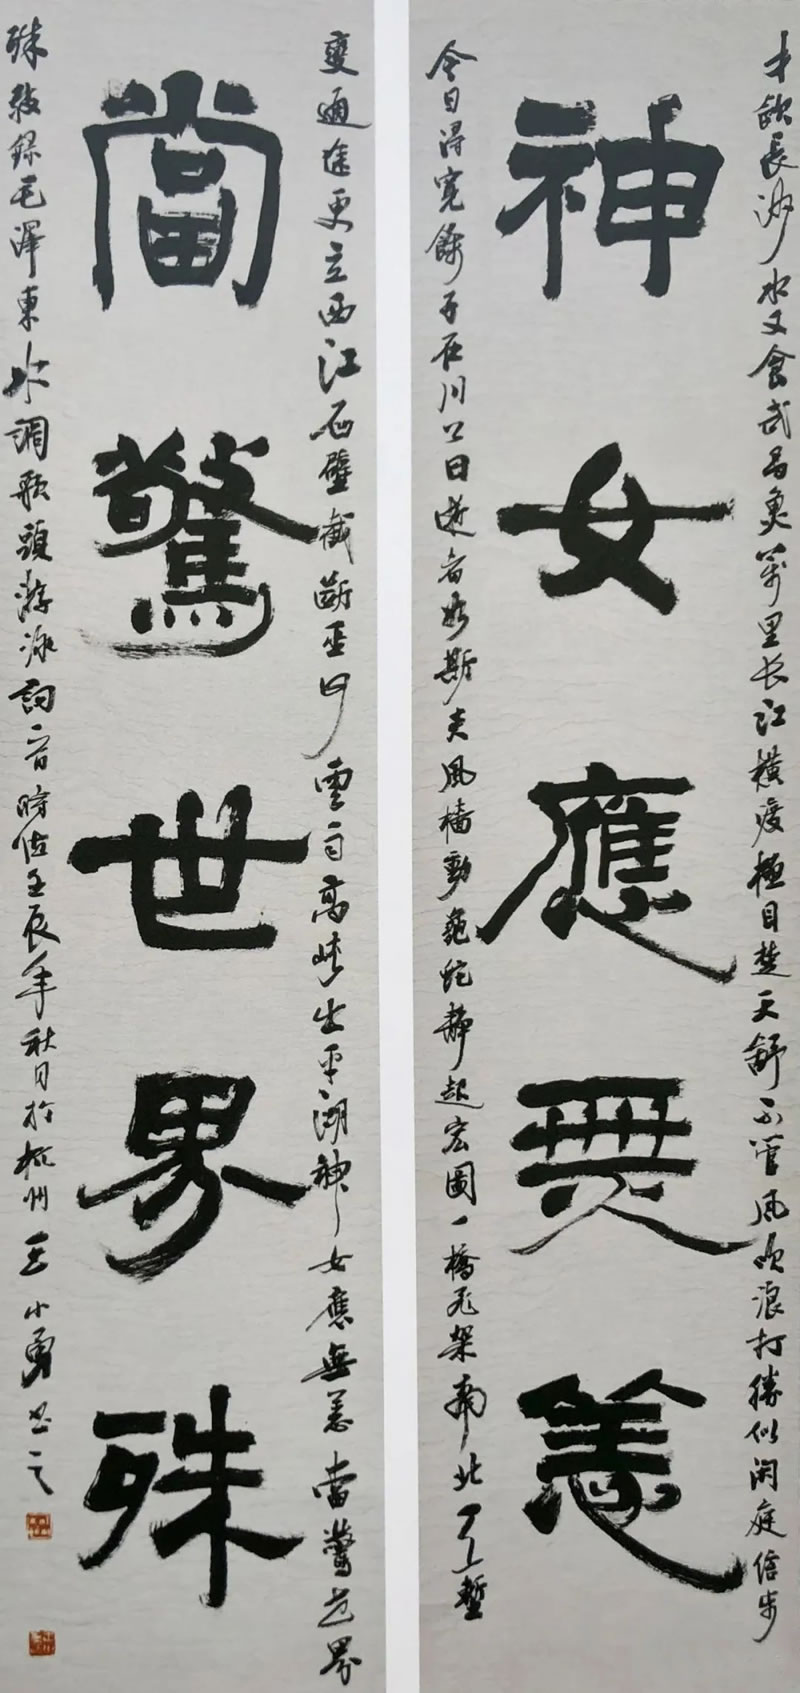 才飲長沙水又食武昌魚萬里长江橫渡極目楚天舒不管風吹浪打勝似闲庭信步
神女應無恙
今日得寬餘子在川上曰逝者如斯夫風檣動龜蛇靜起宏圖一橋飛架南北天塹
變通途更立西江石壁截斷巫山雲雨高峽出平湖神女應無恙當驚世界
當驚世界殊
殊敬録毛澤東水調歌頭游泳詞一首時值壬辰年秋月於杭州王小勇書之